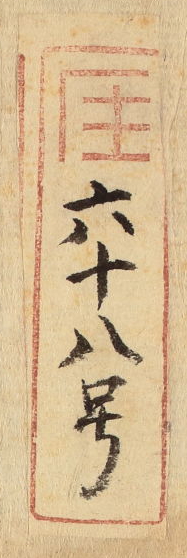 六十八号